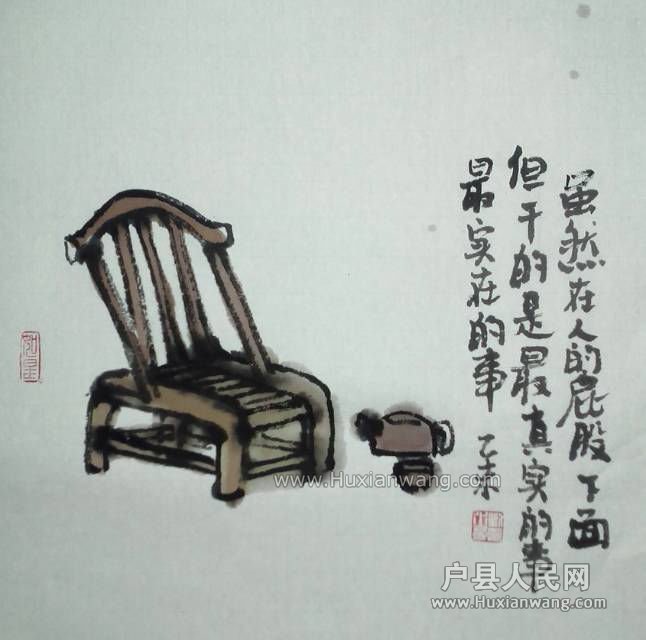 虽然在人的屁股下面
但干的是最真实的事
最实在的事
乙未
www.Huxianwang.com
www.Huxianwang.com
户县人民网
www.Huxianwang.com